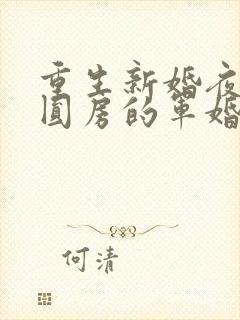 重生新婚夜
圆房的军婚
何清